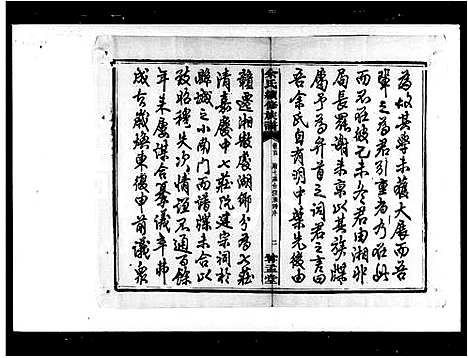 為故其學未獲大展而吾
輩之為君引重為
而君己未冬君由湘
局長來京以其族牒
屬予為弁首之詞君之言曰
吾余氏自有明中葉先後由
余氏續修族譜
卷首
二
堂
贛遷湘散處湖鄉分為七莊
清嘉慶中七莊既建宗祠於
縣城之小南門而譜牒未合以
致昭穆失次情誼不通百餘
年來屢謀合纂議弗
成去歲煥東復申前議衆